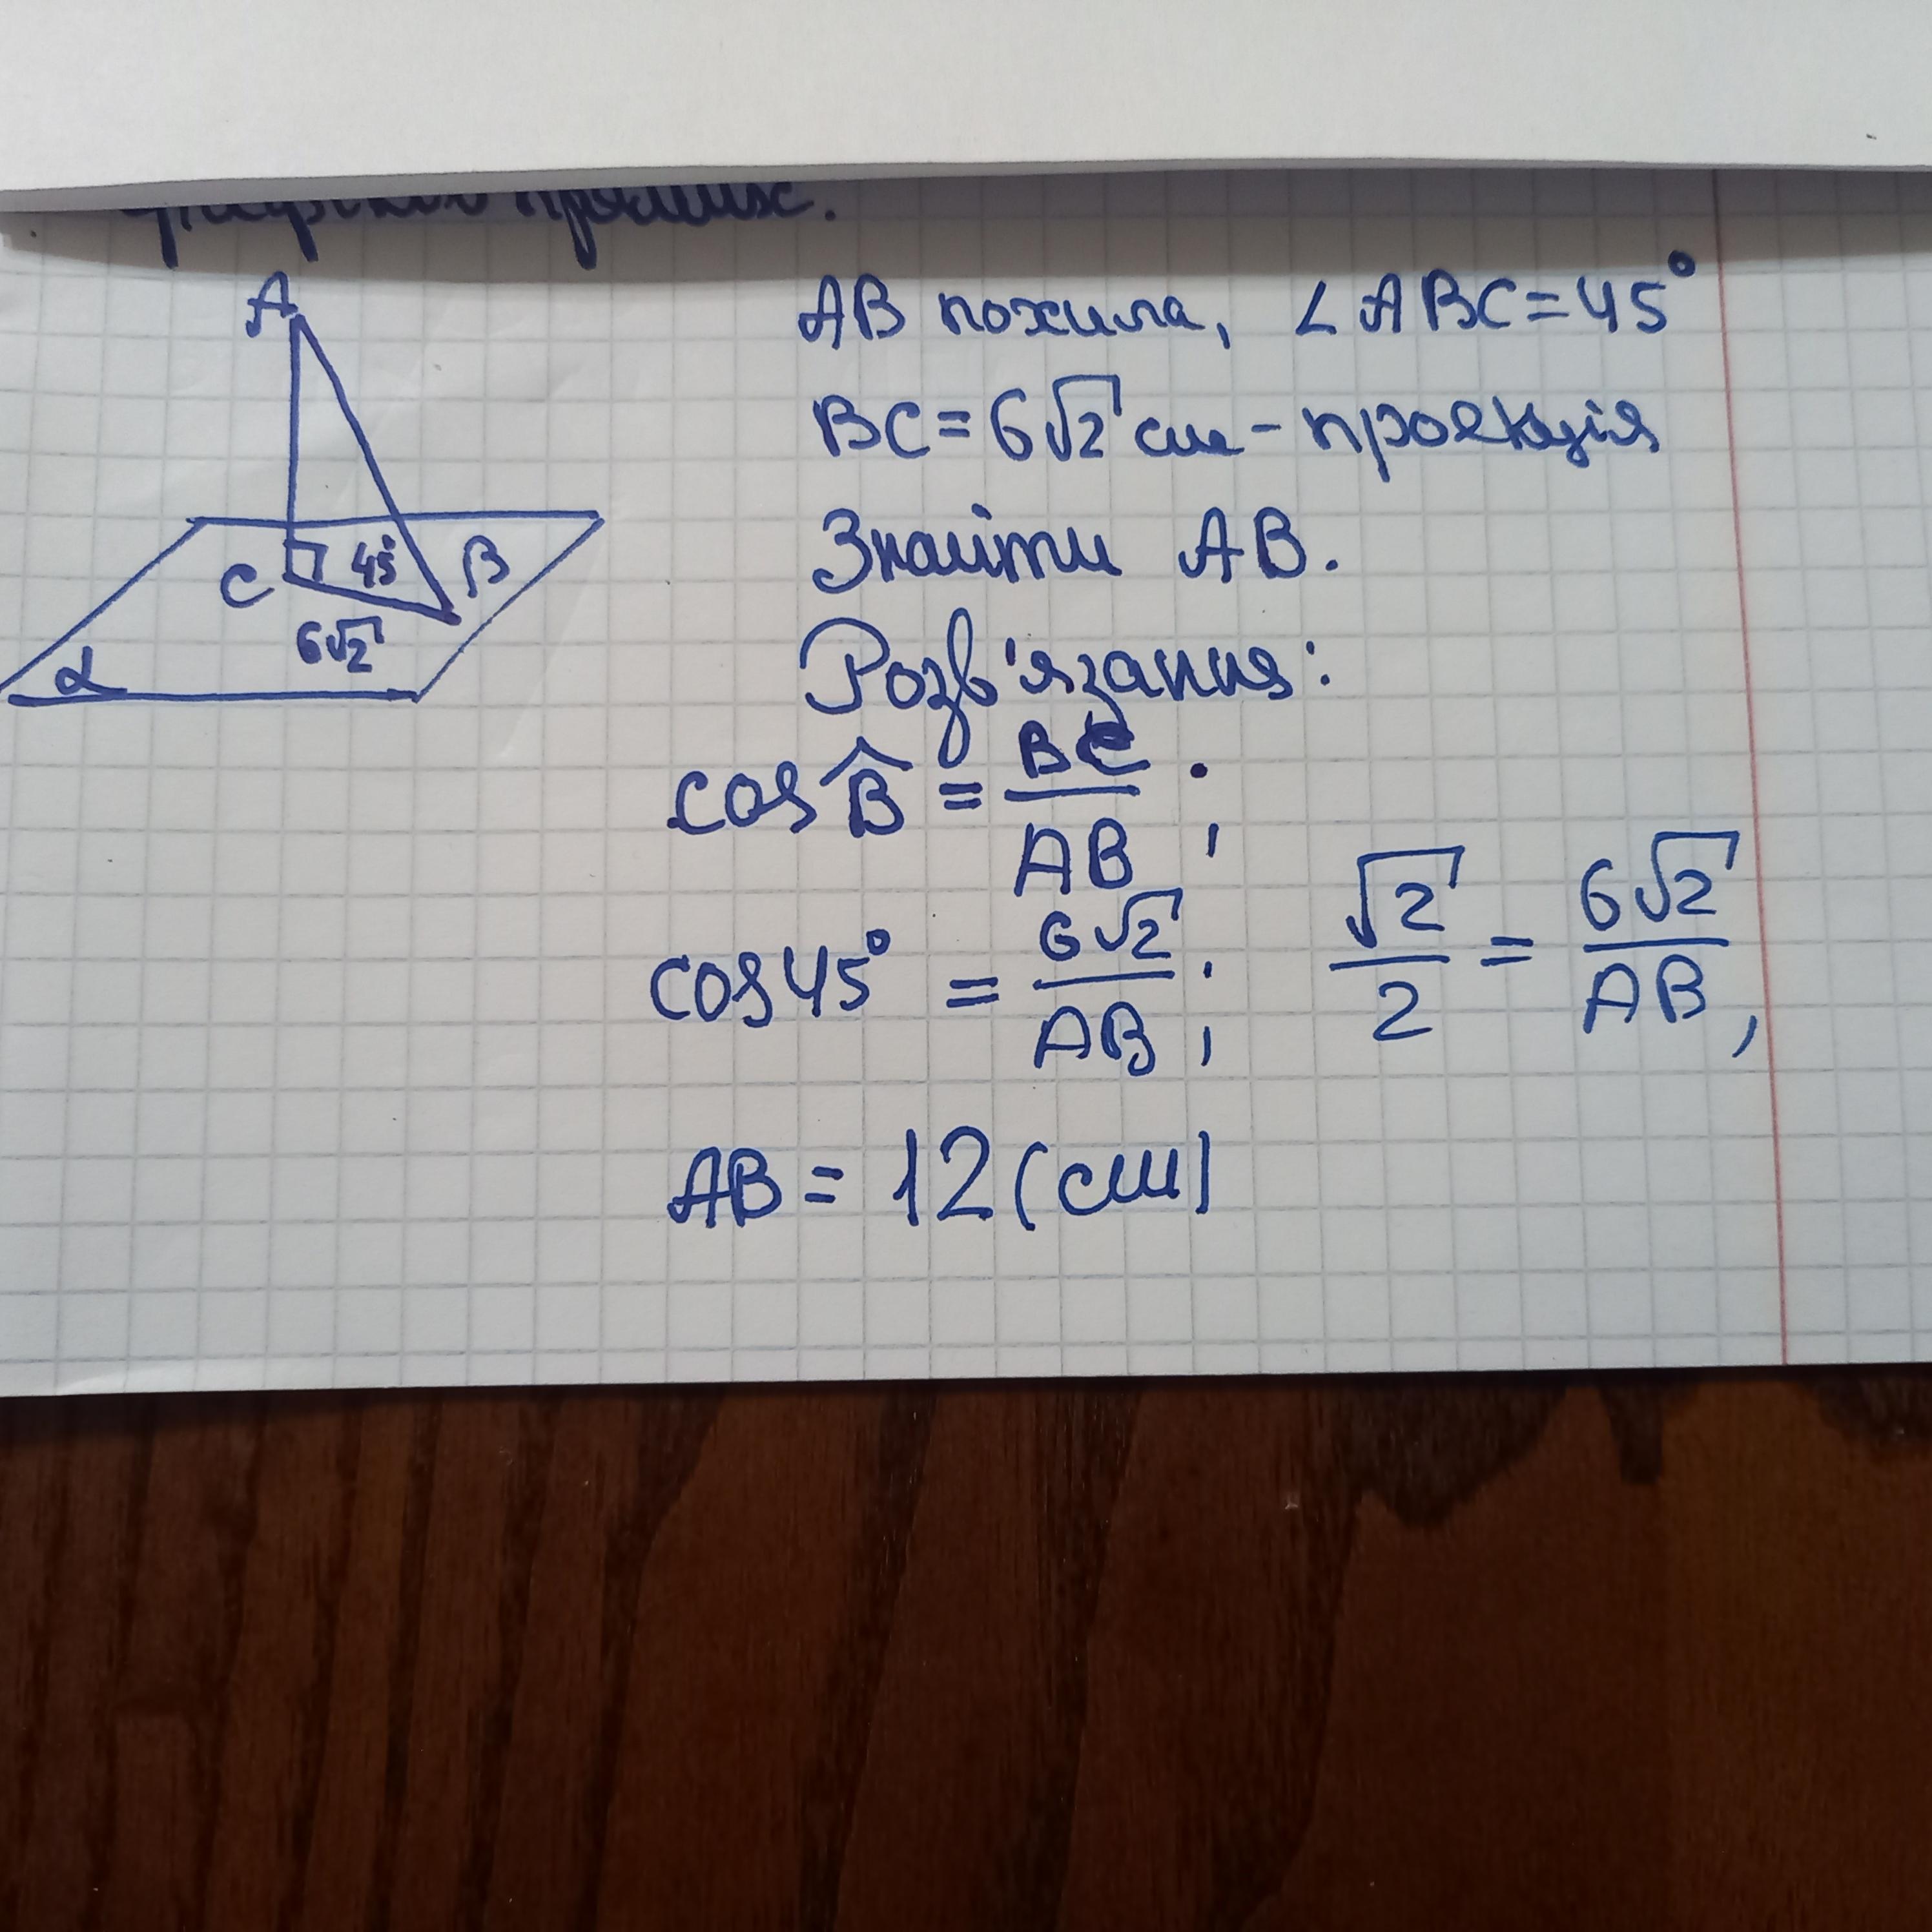 A
C
45°
B
6√2
α
AB похила, ∠ABC=45°
BC=6√2 см - проекція
Знайти AB.
Розв'язання:
cos B̂ = BC/AB;
cos45° = 6√2/AB; √2/2 = 6√2/AB,
AB = 12 (см)